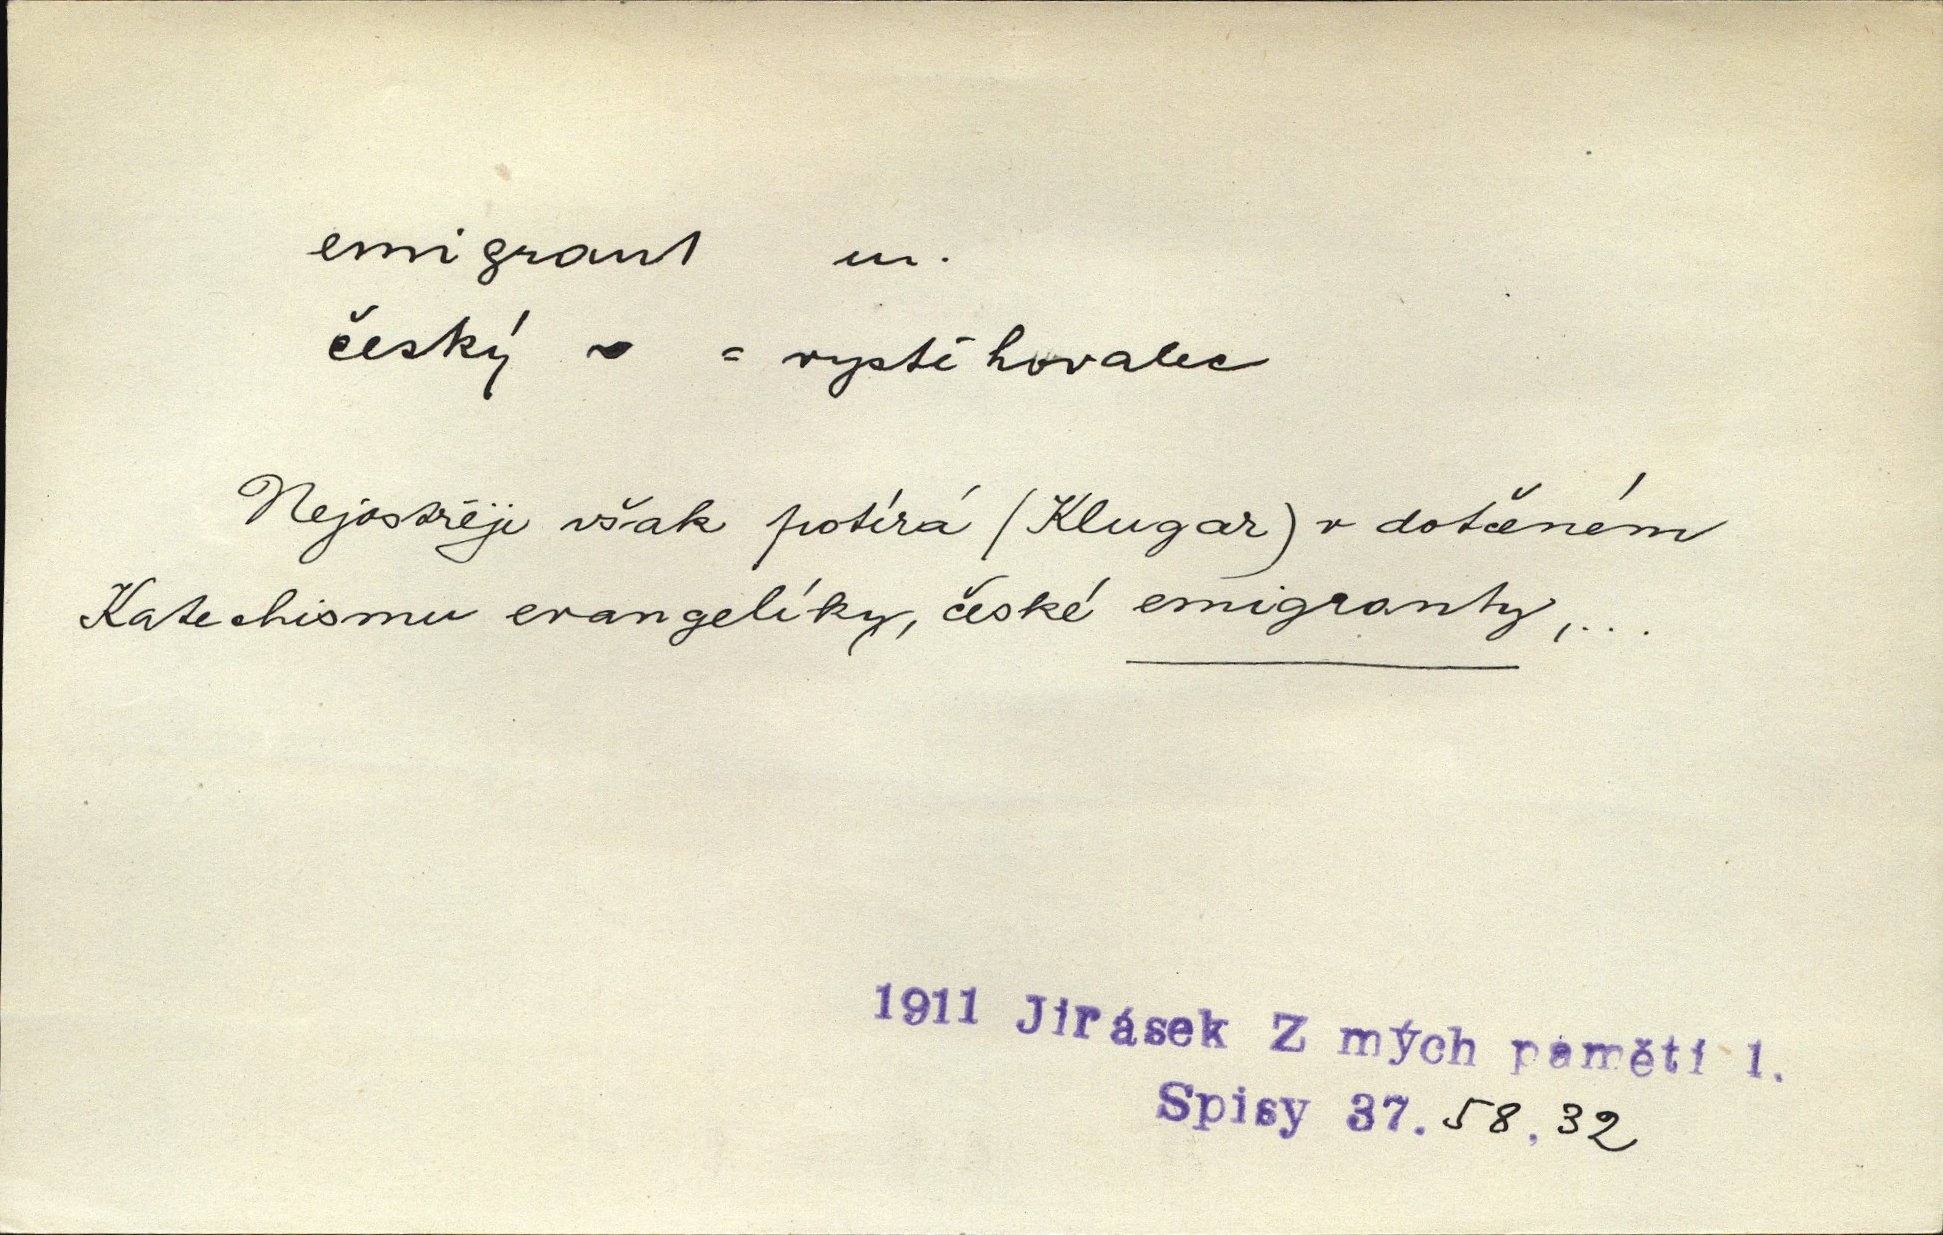 emigrant m.
český ~ = vystěhovalec
Nejostřěji však potírá (Klugar) v dotčeném
Katechismu evangelíky, české emigranty,...
1911 Jirásek Z mých pamětí 1.
Spisy 37. 58, 32